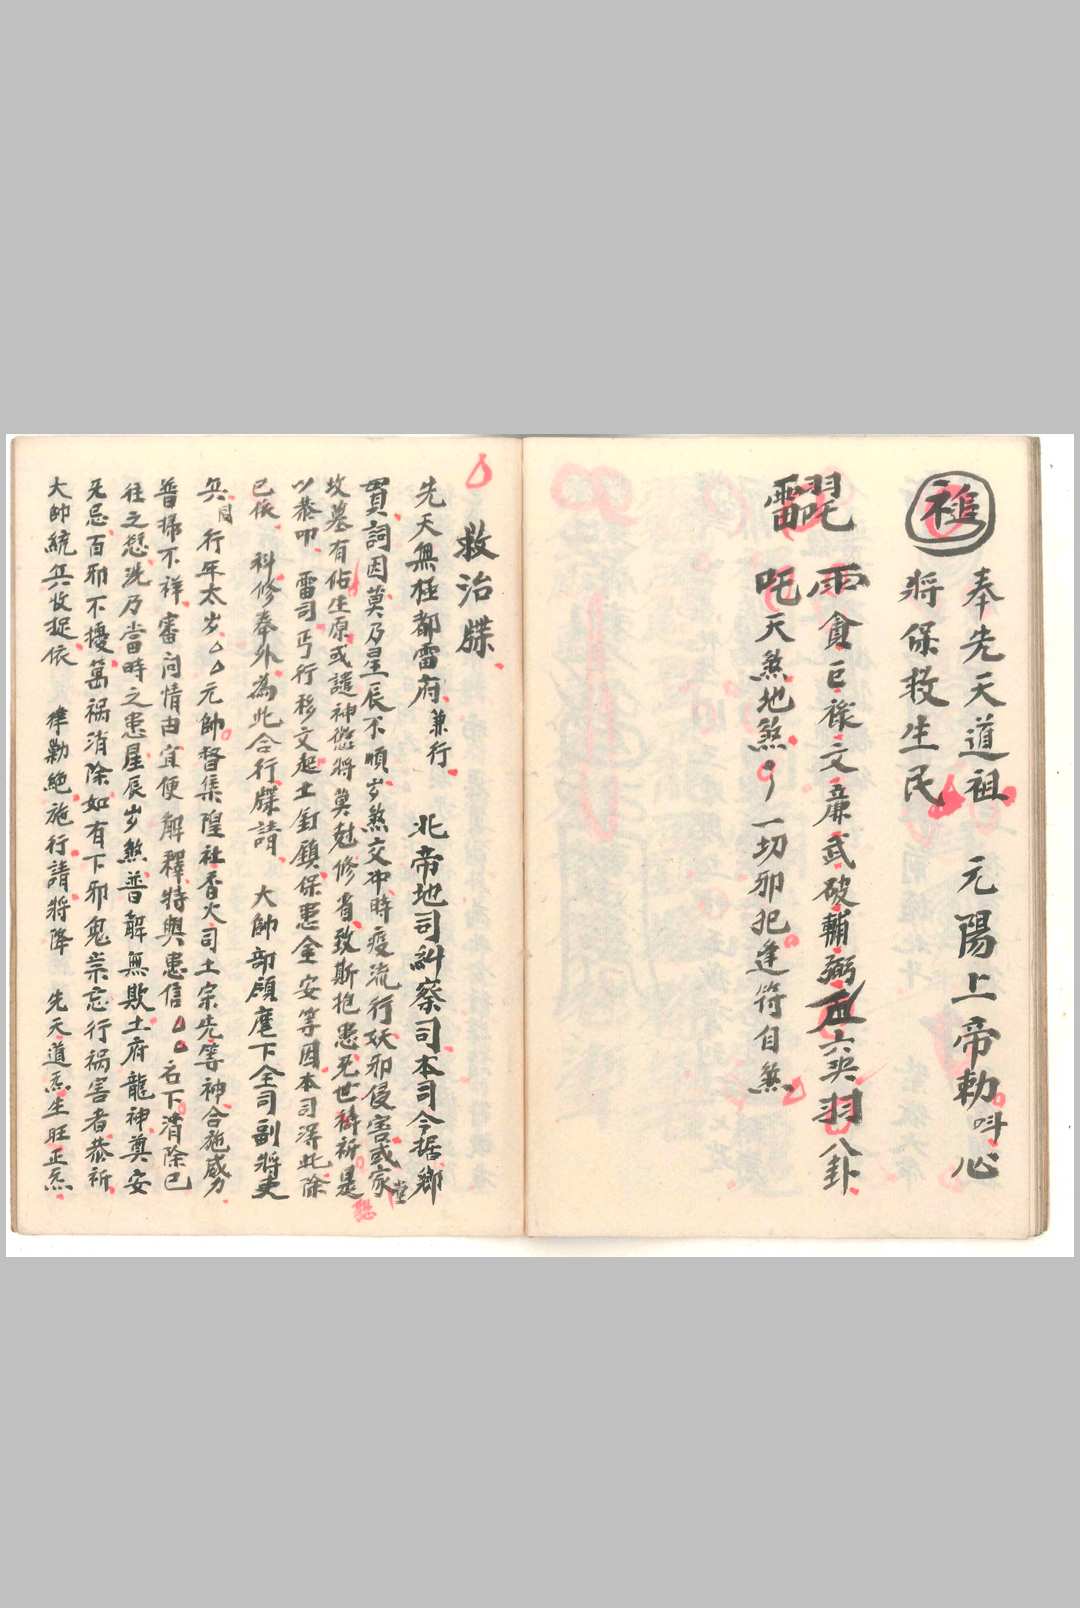 奉先天道祖　元陽上帝勅
將保救生民
貪巨祿文廉武破輔弼　八卦
吒天煞地煞　一切邪犯逢符自煞
救治牒
先天無極都雷府兼行　北帝地司糾察司本司今据鄉
貫詞因莫乃星辰不順岁煞交冲時疫流行妖邪侵害或家堂
坟墓有佔生原或譴神愆將莫尅修省致斯抱患无世禱祈是
以恭叩雷司丐行移文起土釘鎖保患全安等因本司得此除
已依　科修奉外為此合行牒請　大帥部領麾下全司副將吏
兵同　行年太岁厶厶元帥督集隍社香火司土宗先等神合施威力
普掃不祥審问情由宜便解釋特與患信厶厶名下消除已
往之愆洗乃當時之患星辰岁煞普解無欺土府龍神奠安
无忌百邪不擾萬祸消除如有下邪鬼祟忘行祸害者恭祈
大帥統兵收捉依　律勦絕施行請將降　先天道炁生旺正炁